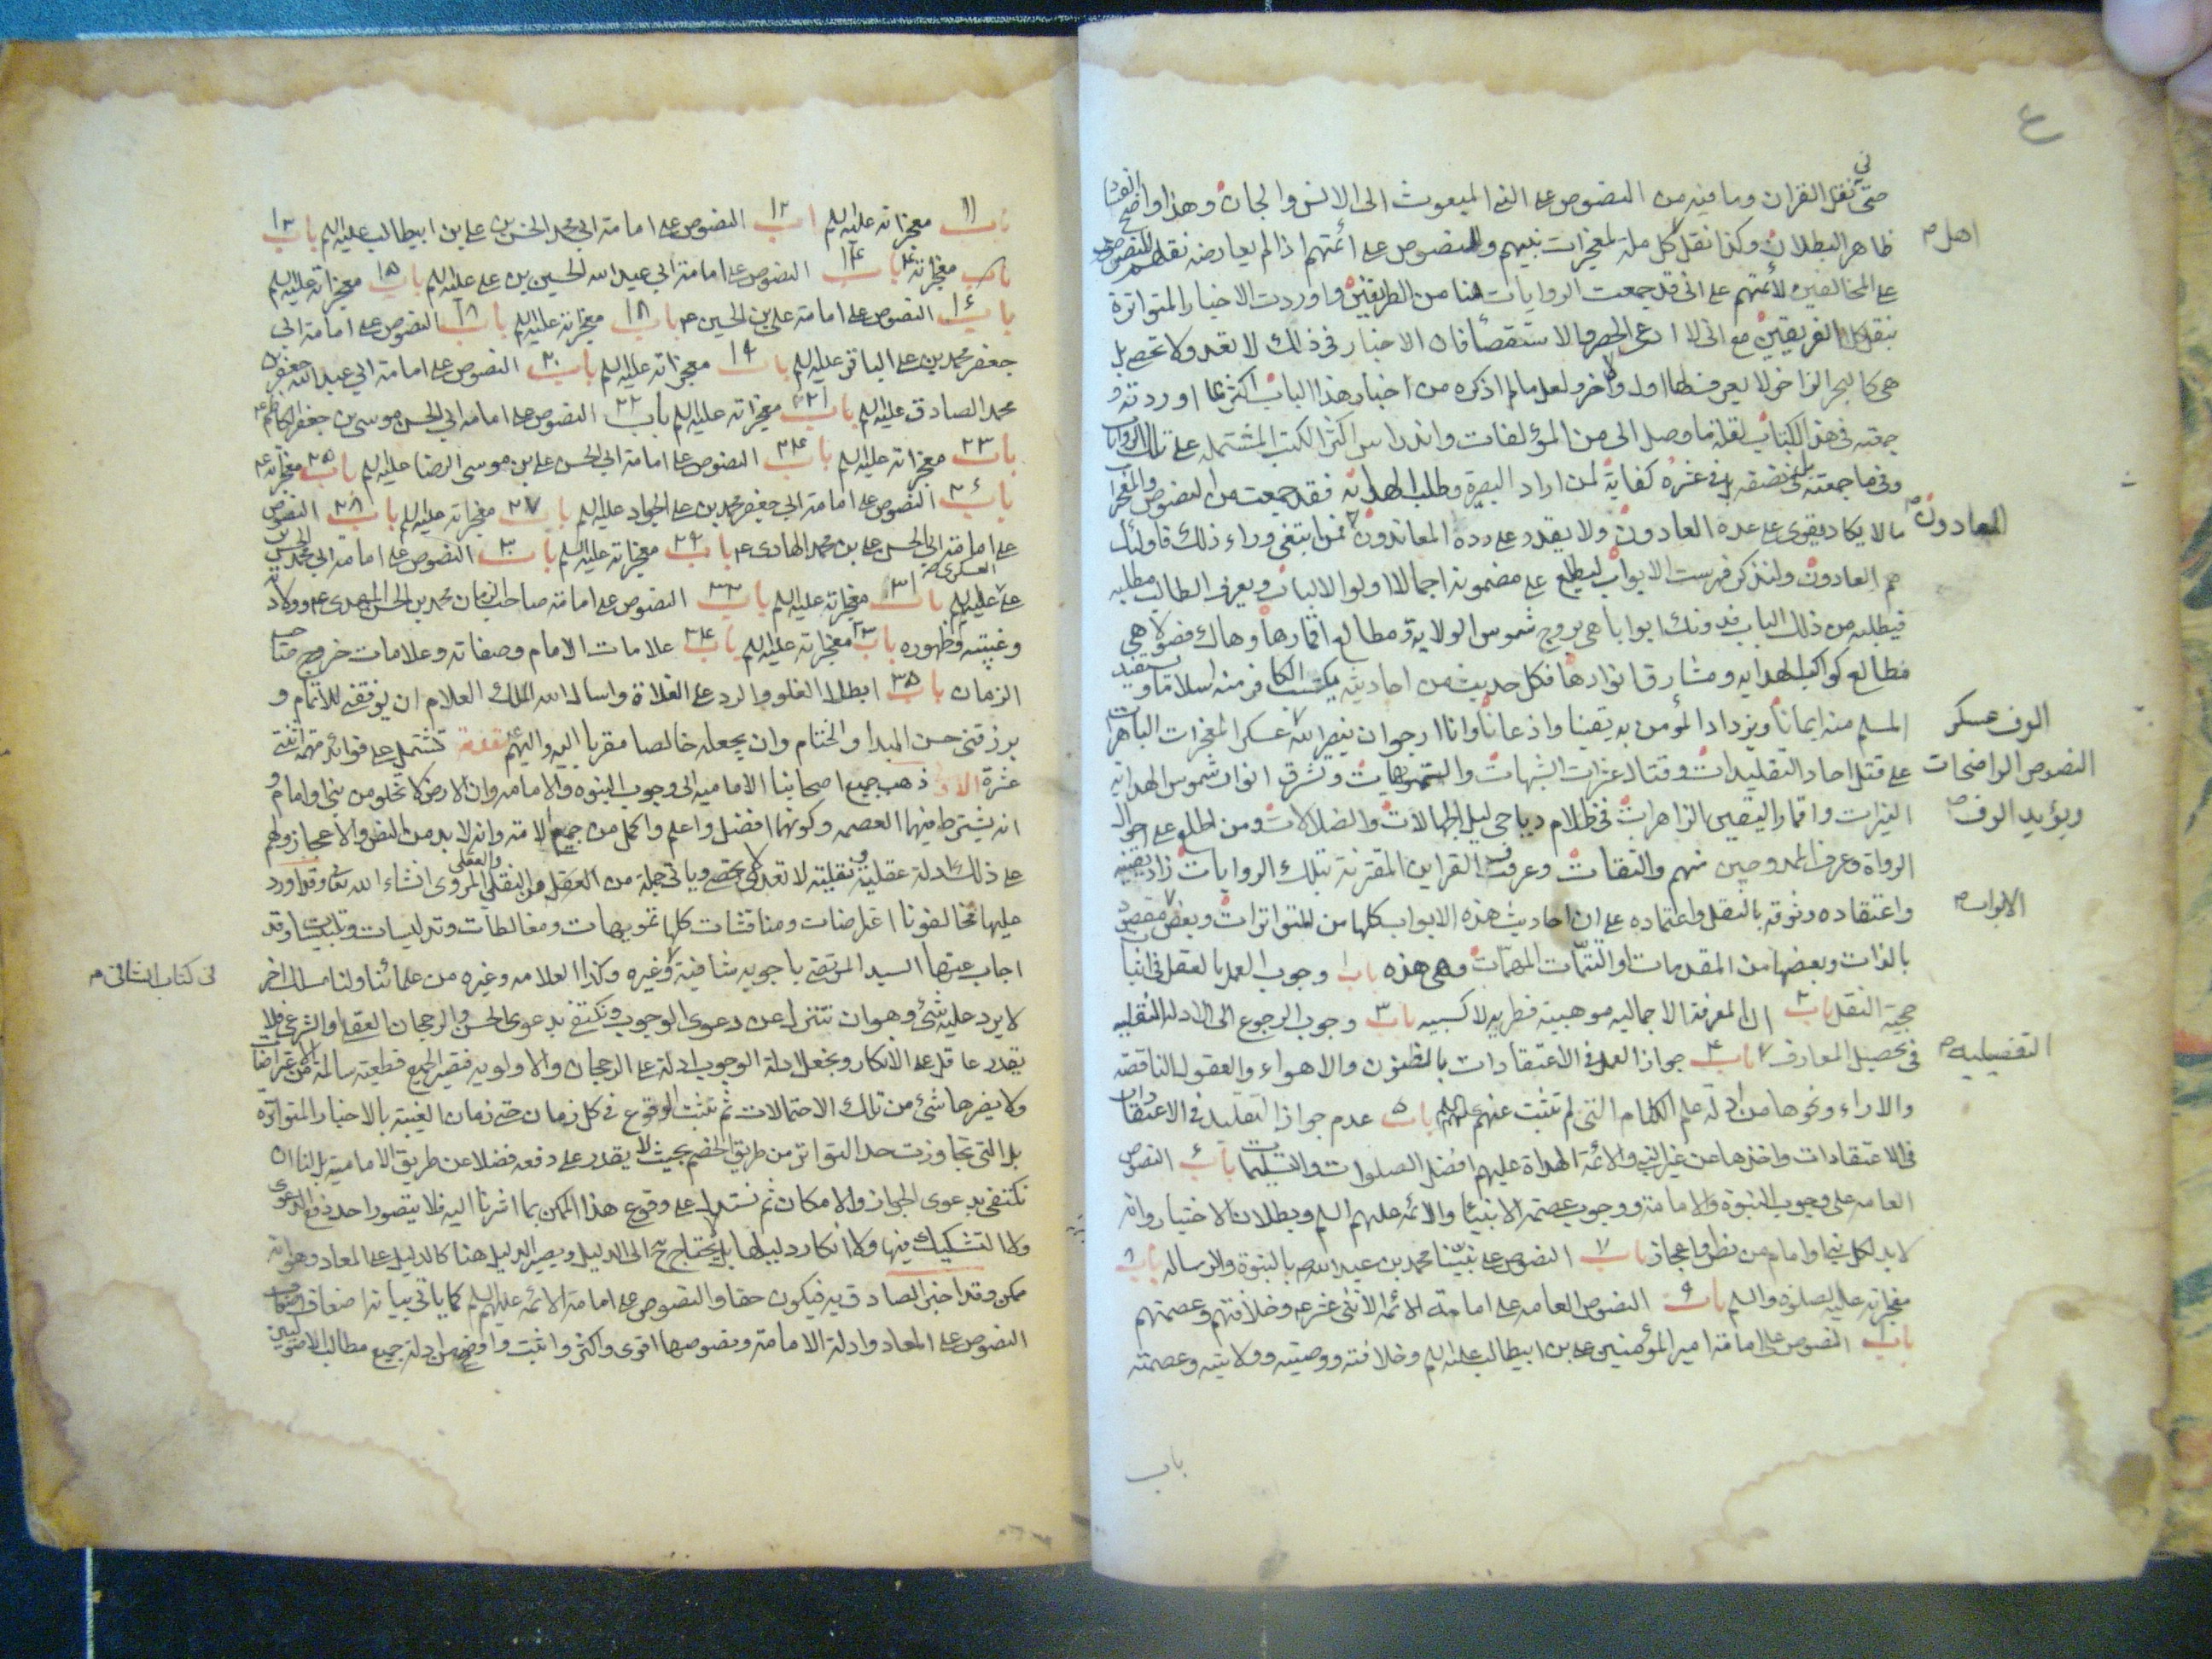 حتى نقل القران وما فيه من النصوص على النبي المبعوث الى الانس والجان وهذا واضح الفساد
ظاهر البطلان وكذا نقل كل ملة لمعجزات نبيهم والنصوص على ائمتهم اذا لم يعارضه نقلهم للنصوص
اهل
على المخالفين لأئمتهم على اني قد جمعت الروايات هنا من الطريقين واوردت الاخبار المتواترة
بنقل كل الفريقين مع اني لا ادعي الحصر والاستقصاء فان الاخبار في ذلك لا تعد ولا تحصى بل
هي كالبحر الزاخر لا يعرف لها اول ولا آخر ولعل ما لم اذكره من اخبار هذا الباب اكثر مما اوردته و
جمعته في هذا الكتاب لقلة ما وصل الي من المؤلفات واندراس اكثر الكتب المشتملة على تلك الروايات
وفي ما جمعته بل في نصفه بل في عشره كفاية لمن اراد البصيرة وطلب الهداية فقد جمعت من النصوص والمعجزات
ما لا يكاد يقوى على عده العادون ولا يقدر على رده المعاندون فمن ابتغى وراء ذلك فاولئك
المعادون
هم العادون ولنذكر فهرست الابواب ليطلع على مضمونه اجمالا اولوا الالباب ويعرف الطالب مطلبه
فيطلبه من ذلك الباب فدونك ابوابا هي بروج شموس الولاية ومطالع اقمارها وهاك فصولا هي
مطالع كواكب الهداية ومشارق انوارها فكل حديث من احاديثه يكتسب الكافر منه اسلاما ويستفيد
المسلم منه ايمانا ويزداد المؤمن به يقينا واذعانا وانا ارجو ان ينصر الله عسكر المعجزات الباهرات
الوف عسكر
على قتل احاد التقليدات وقتال عشرات الشبهات والتمويهات وتشرق انوار شموس الهداية
النصوص الواضحات
النيرات واقمار اليقين الزاهرات في ظلام دياجي ليل الجهالات والضلالات ومن اطلع على احوال
ويؤيد الوف
الرواة وعرف الممدوحين منهم والثقات وعرف القراين المقترنة بتلك الروايات زاد يقينه
واعتقاده وثوقه بالنقل واعتماده على ان احاديث هذه الابواب كلها من المتواترات وبعض مقصود
الابواب
بالذات وبعضها من المقدمات والتتمات المهمات وهي هذه باب ١ وجوب العمل بالعقل في اثبات
حجية النقل باب ٢ ان المعرفة الاجماليه موهبية فطرية لا كسبيه باب ٣ وجوب الرجوع الى الادلة النقليه
في تحصيل المعارف باب ٤ جواز العمل في الاعتقادات بالظنون والاهواء والعقول الناقصة
التفصيليه
والاراء ونحوها من ادلة علم الكلام التي لم تثبت عنهم عليهم السلام باب ٥ عدم جواز التقليد في الاعتقادات
في الاعتقادات واخذها عن غير النبي والائمة الهداة عليهم افضل الصلوات والتسليمات باب ٦ النصوص
العامه على وجوب النبوة والامامة ووجوب عصمة الانبياء والائمه عليهم السلام وبطلان الاختيار وانه
لا بد لكل نبي وامام من نص واعجاز باب ٧ النصوص على نبينا محمد بن عبد الله ص بالنبوة والرساله باب ٨
معجزاته عليه الصلوة والسلام باب ٩ النصوص العامه على امامة الائمه الاثنى عشر ع وخلافتهم وعصمتهم
باب ١٠ النصوص على امامة امير المؤمنين علي بن ابيطالب عليه السلام وخلافته ووصيته وولايته وعصمته
باب
باب ١١ معجزاته عليه السلام باب ١٢ النصوص على امامة ابي محمد الحسن بن علي بن ابيطالب عليه السلام باب ١٣
باب معجزاته ع باب ١٤ النصوص على امامة ابي عبد الله الحسين بن علي عليه السلام باب ١٥ معجزاته عليه السلام
باب ١٦ النصوص على امامة علي بن الحسين ع باب ١٨ معجزاته عليه السلام باب ١٨ النصوص على امامة ابي
جعفر محمد بن علي الباقر عليه السلام باب ١٩ معجزاته عليه السلام باب ٢٠ النصوص على امامة ابي عبد الله جعفر بن
محمد الصادق عليه السلام باب ٢١ معجزاته عليه السلام باب ٢٢ النصوص على امامة ابي الحسن موسى بن جعفر الكاظم ع
باب ٢٣ معجزاته عليه السلام باب ٢٤ النصوص على امامة ابي الحسن علي بن موسى الرضا عليه السلام باب ٢٥ معجزاته ع
باب ٢٦ النصوص على امامة ابي جعفر محمد بن علي الجواد عليه السلام باب ٢٧ معجزاته عليه السلام باب ٢٨ النصوص
على امامة ابي الحسن علي بن محمد الهادى ع باب ٢٩ معجزاته عليه السلام باب ٣٠ النصوص على امامة ابي محمد الحسن بن
علي العسكرى عليهم السلام باب ٣١ معجزاته عليه السلام باب ٣٢ النصوص على امامة صاحب الزمان محمد بن الحسن المهدى ع وولادته
وغيبته وظهوره باب ٣٣ معجزاته عليه السلام باب ٣٤ علامات الامام وصفاته وعلامات خروج صاحب
الزمان باب ٣٥ ابطال الغلو والرد على الغلاة واسال الله الملك العلام ان يوفقني للاتمام و
يرزقني حسن المبدا والختام وان يجعله خالصا مقربا اليه واليهم ع مقدمة تشتمل على فوائد مهمة اثنتي
عشرة الاولى ذهب جميع اصحابنا الاماميه الى وجوب النبوه والامامه وان الارض لا تخلو من نبي او امام و
انه يشترط فيهما العصمه وكونهما افضل واعلم واكمل من جميع الامة وانه لا بد من النص والاعجاز ولهم
على ذلك ادلة عقلية ونقلية لا تعد ولا تحصى وياتي جملة من العقلي والنقلي المروى انشاء الله تعالى وقد اورد
عليها مخالفونا اعتراضات ومناقشات كلها تمويهات ومغالطات وتدليسات وتلبيسات وقد
اجاب عنها السيد المرتضى باجوبه شافية وغيره وكذا العلامه وغيره من علمائنا ولنا مسلك اخر
في كتاب الشافي
لا يرد عليه شئ وهو ان نتنزل عن دعوى الوجوب ونكتفي بدعوى الحسن والرجحان العقلي والشرعي فلا
يقدر عاقل على الانكار ونجعل ادلة الوجوب ادلة على الرجحان والاولويه فتصير الجميع قطعية سالمة من الاعتراضات
ولا يضرها شئ من تلك الاحتمالات ثم نثبت الوقوع في كل زمان حتى زمان الغيبة بالاخبار المتواترة
بل التي تجاوزت حد التواتر من طريق الخصم بحيث لا يقدر على دفعه فضلا عن طريق الامامية بل لنا ان
نكتفي بدعوى الجواز والامكان ثم نستدل على وقوع هذا الممكن بما اشرنا اليه فلا يتصور احد دفع الدعوى
ولا التشكيك فيها ولا انكار دليلها بل يحتاج ح الى الدليل ويصير الدليل هنا كالدليل على المعاد وهو انه
ممكن وقد اخبر الصادق به فيكون حقا والنصوص على امامة الائمه عليهم السلام كما ياتي بيانه اضعاف
النصوص على المعاد وادلة الامامة ونصوصها اقوى واكثر واثبت واوضح من ادلة جميع مطالب الاصوليين